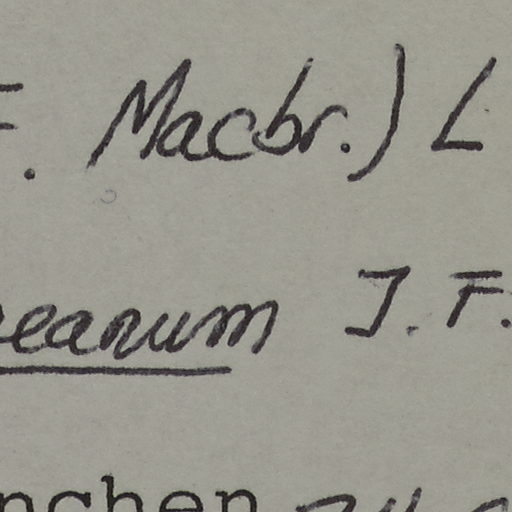 F. Macbr.) L
eanum J. F.
nchen